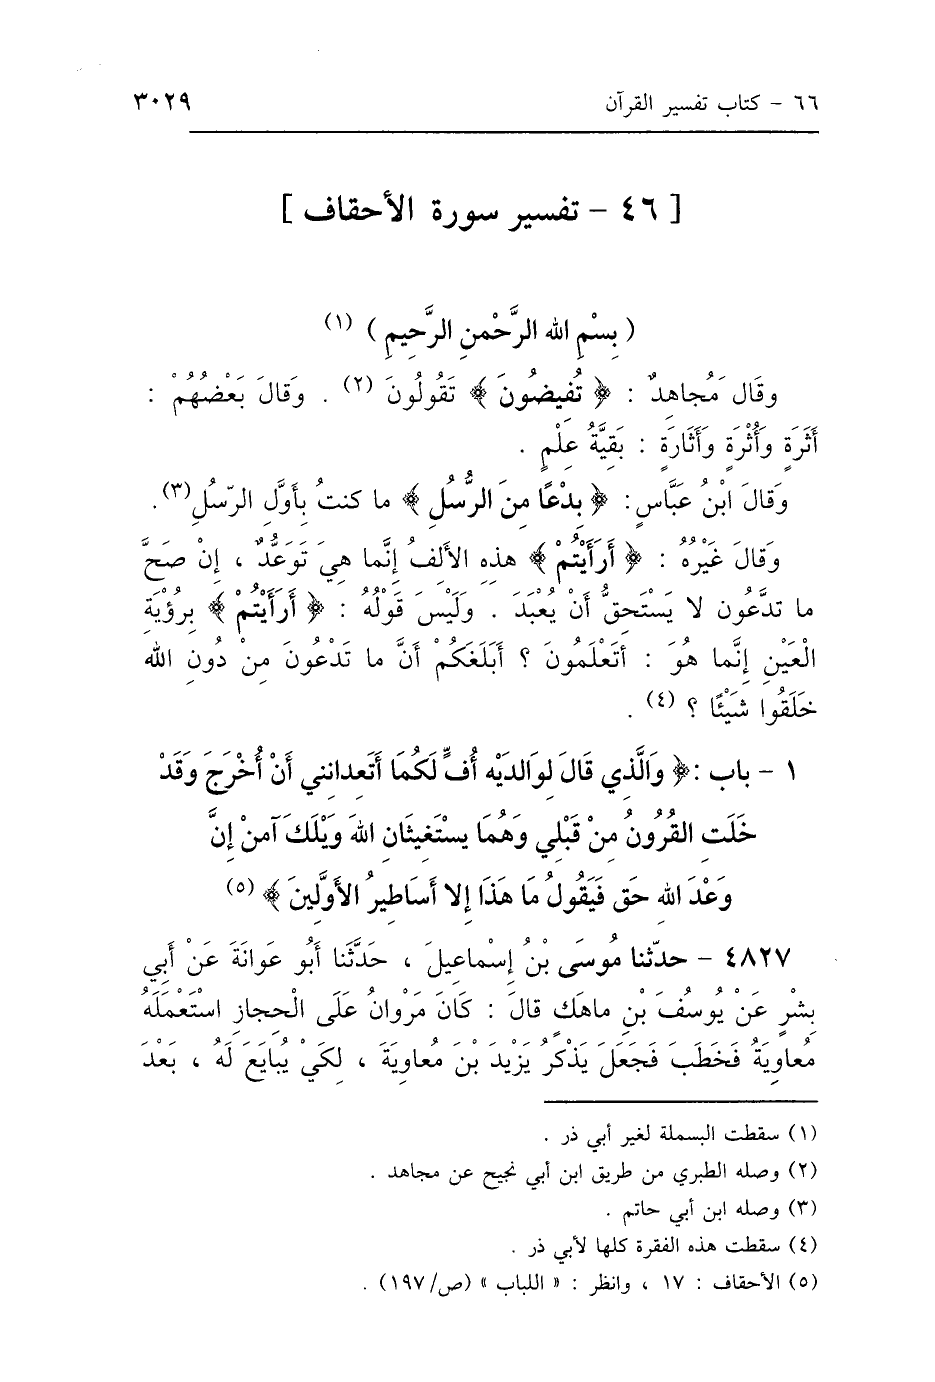 ٦٦ - كتاب تفسير القرآن ٣٠٢٩
[ ٤٦ - تفسير سورة الأحقاف ]
( بِسْمِ الله الرَّحْمنِ الرَّحِيمِ ) (١)
وقَال مُجاهدٌ : ﴿ تُفيضُونَ ﴾ تَقُولُونَ (٢) . وَقالَ بَعْضُهُمْ :
أَثَرَةٍ وَأُثْرَةٍ وَأَثَارَةٍ : بَقِيَّةُ عِلْمٍ .
وَقالَ ابْنُ عَبَّاسٍ : ﴿ بِدْعًا مِنَ الرُّسُلِ ﴾ ما كنتُ بِأَوَّلِ الرّسُلِ(٣).
وَقالَ غَيْرُهُ : ﴿ أَرَأَيْتُمْ ﴾ هذه الألفُ إنَّما هيَ تَوَعُّدٌ ، إنْ صَحَّ
ما تدَّعُون لا يَسْتَحقُّ أَنْ يُعْبَدَ . وَلَيْسَ قَوْلُهُ : ﴿ أَرَأَيْتُمْ ﴾ بِرُؤْيَةِ
الْعَيْنِ إنَّما هُوَ : أتَعْلَمُونَ ؟ أَبَلَغَكُمْ أَنَّ ما تَدْعُونَ مِنْ دُونِ الله
خَلَقُوا شَيْئًا ؟ (٤) .
١ - باب :﴿ وَالَّذِي قَالَ لِوَالِدَيْهِ أُفٍّ لَكُمَا أَتَعدانِني أَنْ أُخْرَجَ وَقَدْ
خَلَتِ القُرُونُ مِنْ قَبْلِي وَهُمَا يسْتَغِيثَانِ اللهَ وَيْلَكَ آمِنْ إِنَّ
وَعْدَ اللهِ حَق فَيَقُولُ مَا هَذَا إلا أسَاطيرُ الأَوَّلينَ ﴾ (٥)
٤٨٢٧ - حدّثنا مُوسَى بْنُ إِسْماعِيلَ ، حَدَّثَنا أَبُو عَوانَةَ عَنْ أَبِي
بِشْرٍ عَنْ يُوسُفَ بْنِ ماهَكٍ قالَ : كَانَ مَرْوانُ عَلَى الْحِجازِ اسْتَعْمَلَهُ
مُعاوِيَةُ فَخَطَبَ فَجَعَلَ يَذْكُرُ يَزِيدَ بْنَ مُعاوِيَةَ ، لِكَيْ يُبايَعَ لَهُ ، بَعْدَ
(١) سقطت البسملة لغير أبي ذر .
(٢) وصله الطبري من طريق ابن أبي نجيح عن مجاهد .
(٣) وصله ابن أبي حاتم .
(٤) سقطت هذه الفقرة كلها لأبي ذر .
(٥) الأحقاف : ١٧ ، وانظر : « اللباب » (ص/١٩٧) .